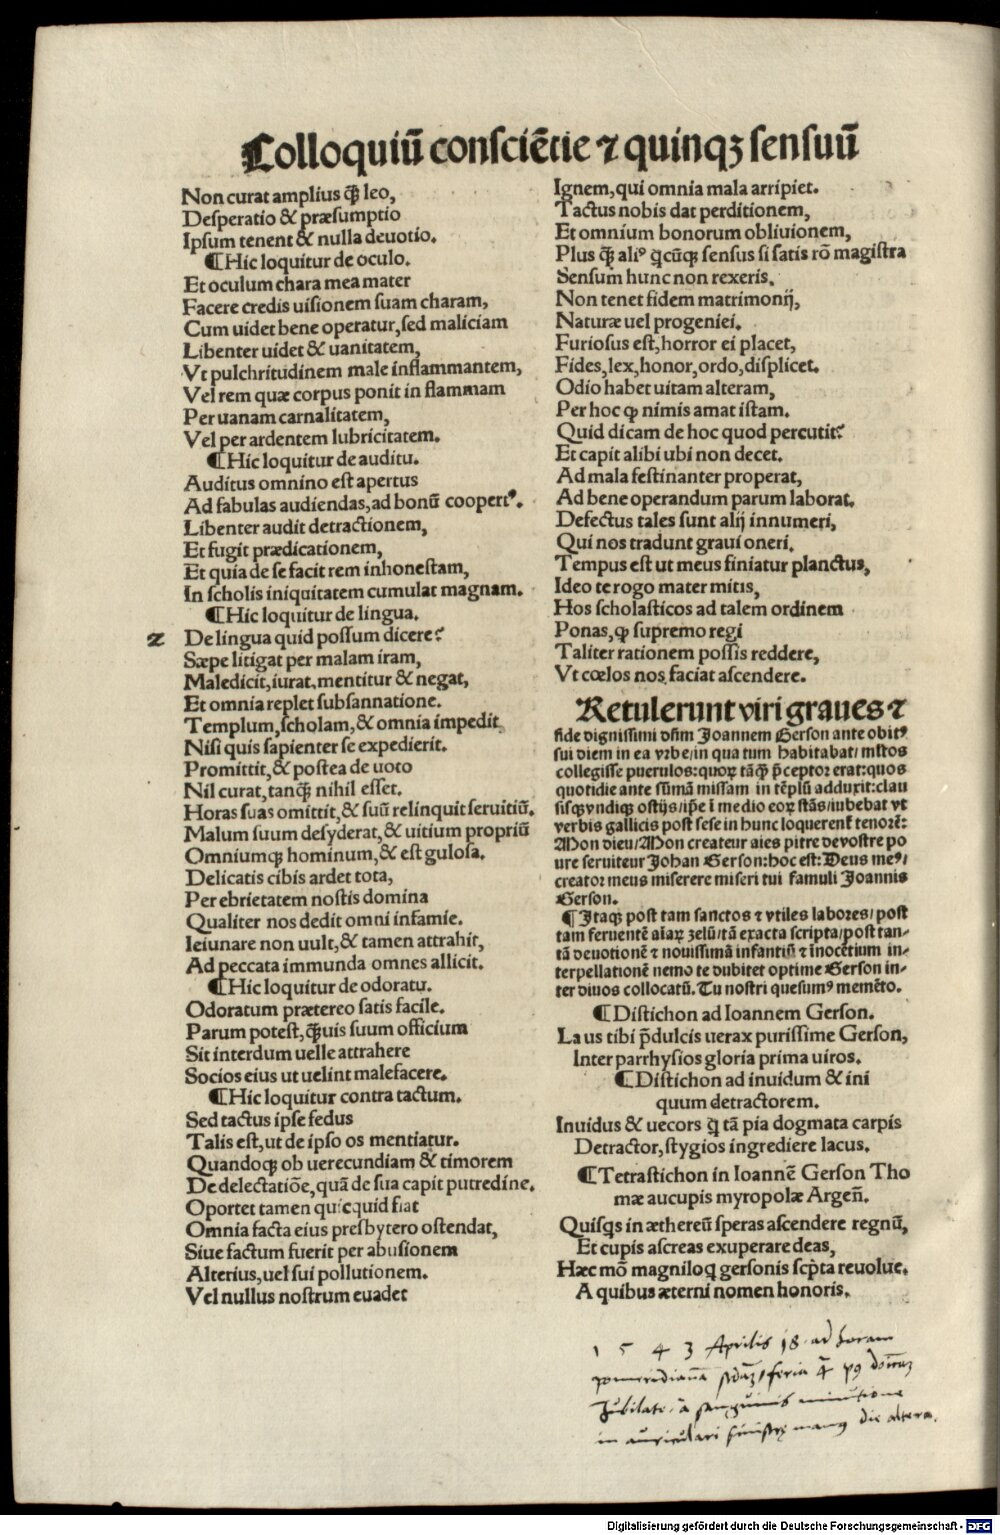 Colloquiū consciētie ⁊ quinqꝫ sensuū
Non curat amplius ꝙ̃ leo,
Desperatio & præsumptio
Ipsum tenent & nulla deuotio.
¶Hic loquitur de oculo.
Et oculum chara mea mater
Facere credis uisionem suam charam,
Cum uidet bene operatur, sed maliciam
Libenter uidet & uanitatem,
Vt pulchritudinem male inflammantem,
Vel rem quæ corpus ponit in flammam
Per uanam carnalitatem,
Vel per ardentem lubricitatem.
¶Hic loquitur de auditu.
Auditus omnino est apertus
Ad fabulas audiendas, ad bonū coopertꝰ.
Libenter audit detractionem,
Et fugit prædicationem,
Et quia de se facit rem inhonestam,
In scholis iniquitatem cumulat magnam.
¶Hic loquitur de lingua.
Z De lingua quid possum dicere?
Sæpe litigat per malam iram,
Maledicit, iurat, mentitur & negat,
Et omnia replet subsannatione.
Templum, scholam, & omnia impedit,
Nisi quis sapienter se expedierit.
Promittit, & postea de uoto
Nil curat, tanꝙ̃ nihil esset.
Horas suas omittit, & suū relinquit seruitiū.
Malum suum desyderat, & uitium propriū
Omniumqꝫ hominum, & est gulosa.
Delicatis cibis ardet tota,
Per ebrietatem nostis domina
Qualiter nos dedit omni infamie.
Ieiunare non uult, & tamen attrahit,
Ad peccata immunda omnes allicit.
¶Hic loquitur de odoratu.
Odoratum prætereo satis facile.
Parum potest, ꝙ̃uis suum officium
Sit interdum uelle attrahere
Socios eius ut uelint malefacere.
¶Hic loquitur contra tactum.
Sed tactus ipse fedus
Talis est, ut de ipso os mentiatur.
Quandoqꝫ ob uerecundiam & timorem
De delectatiōe, quā de sua capit putredine.
Oportet tamen quicquid fiat
Omnia facta eius presbytero ostendat,
Siue factum fuerit per abusionem
Alterius, uel sui pollutionem.
Vel nullus nostrum euadet
Ignem, qui omnia mala arripiet.
Tactus nobis dat perditionem,
Et omnium bonorum obliuionem,
Plus ꝙ̃ aliꝰ q̇cūqꝫ sensus si satis rō magistra
Sensum hunc non rexeris.
Non tenet fidem matrimonij,
Naturæ uel progeniei.
Furiosus est, horror ei placet,
Fides, lex, honor, ordo, displicet.
Odio habet uitam alteram,
Per hoc ꝙ nimis amat istam.
Quid dicam de hoc quod percutit?
Et capit alibi ubi non decet.
Ad mala festinanter properat,
Ad bene operandum parum laborat.
Defectus tales sunt alij innumeri,
Qui nos tradunt graui oneri.
Tempus est ut meus finiatur planctus,
Ideo te rogo mater mitis,
Hos scholasticos ad talem ordinem
Ponas, ꝙ supremo regi
Taliter rationem possis reddere,
Vt cœlos nos faciat ascendere.
Retulerunt viri graues ⁊
fide dignissimi dñm Joannem Gerson ante obitꝰ
sui diem in ea vrbe/in qua tum habitabat/ mltos
collegisse puerulos: quoꝝ tāꝙ̃ p̄ceptor erat: quos
quotidie ante sūmā missam in tēplū adduxit: clau
sisqꝫ vndiqꝫ ostijs/ip̄e ī medio eoꝝ stās/iubebat vt
verbis gallicis post sese in hunc loquerent᷑ tenorē:
Mon dieu/Mon createur aies pitre de vostre po
ure seruiteur Johan Gerson: hoc est: Deus meꝰ/
creator meus miserere miseri tui famuli Joannis
Gerson.
¶Itaqꝫ post tam sanctos ⁊ vtiles labores/ post
tam feruentē aīaꝝ zelū/tā exacta scripta/post tan-
tā deuotionē ⁊ nouissimā infantiū ⁊ īnocētium in-
terpellationē nemo te dubitet optime Gerson in-
ter diuos collocatū. Tu nostri quesumꝰ memēto.
¶Distichon ad Ioannem Gerson.
Laus tibi p̄dulcis uerax purissime Gerson,
Inter parrhysios gloria prima uiros.
¶Distichon ad inuidum & ini
quum detractorem.
Inuidus & uecors q̇ tā pia dogmata carpis
Detractor, stygios ingrediere lacus.
¶Tetrastichon in Ioannē Gerson Tho
mæ aucupis myropolæ Argeñ.
Quisq̇s in æthereū speras ascendere regnū,
Et cupis ascreas exuperare deas,
Hæc mō magniloq̇ gersonis sc̄pta reuolue.
A quibus æterni nomen honoris.
1543 Aprilis 18. ad horam
pomeridianā feria 4ta
Jubilate, a sanguinis minutione
in auriculari sinistrę manus die altera.
Digitalisierung gefördert durch die Deutsche Forschungsgemeinschaft - DFG